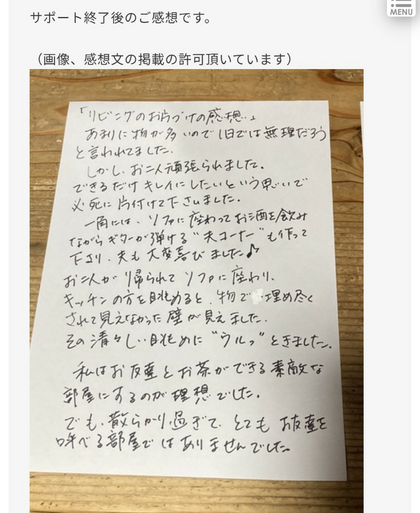 MENU
サポート終了後のご感想です。
（画像、感想文の掲載の許可頂いています）
「リビングのお片づけの感想」
あまりに物が多いので1日では無理だろう
と言われてました。
しかし、お二人頑張られました。
できるだけキレイにしたいという思いで
必死に片付けて下さいました。
一角には、ソファに座わってお酒を飲み
ながらギターが弾ける“夫コーナー”も作って
下さり、夫も大変喜びました♪
お二人が帰られてソファに座わり、
キッチンの方を眺めると、物で埋め尽く
されて見えなかった壁が見えました。
その清々しい眺めに“ウルっ”ときました。
私はお友達とお茶ができる素敵な
部屋にするのが理想でした。
でも、散らかり過ぎて、とてもお友達を
呼べる部屋ではありませんでした。